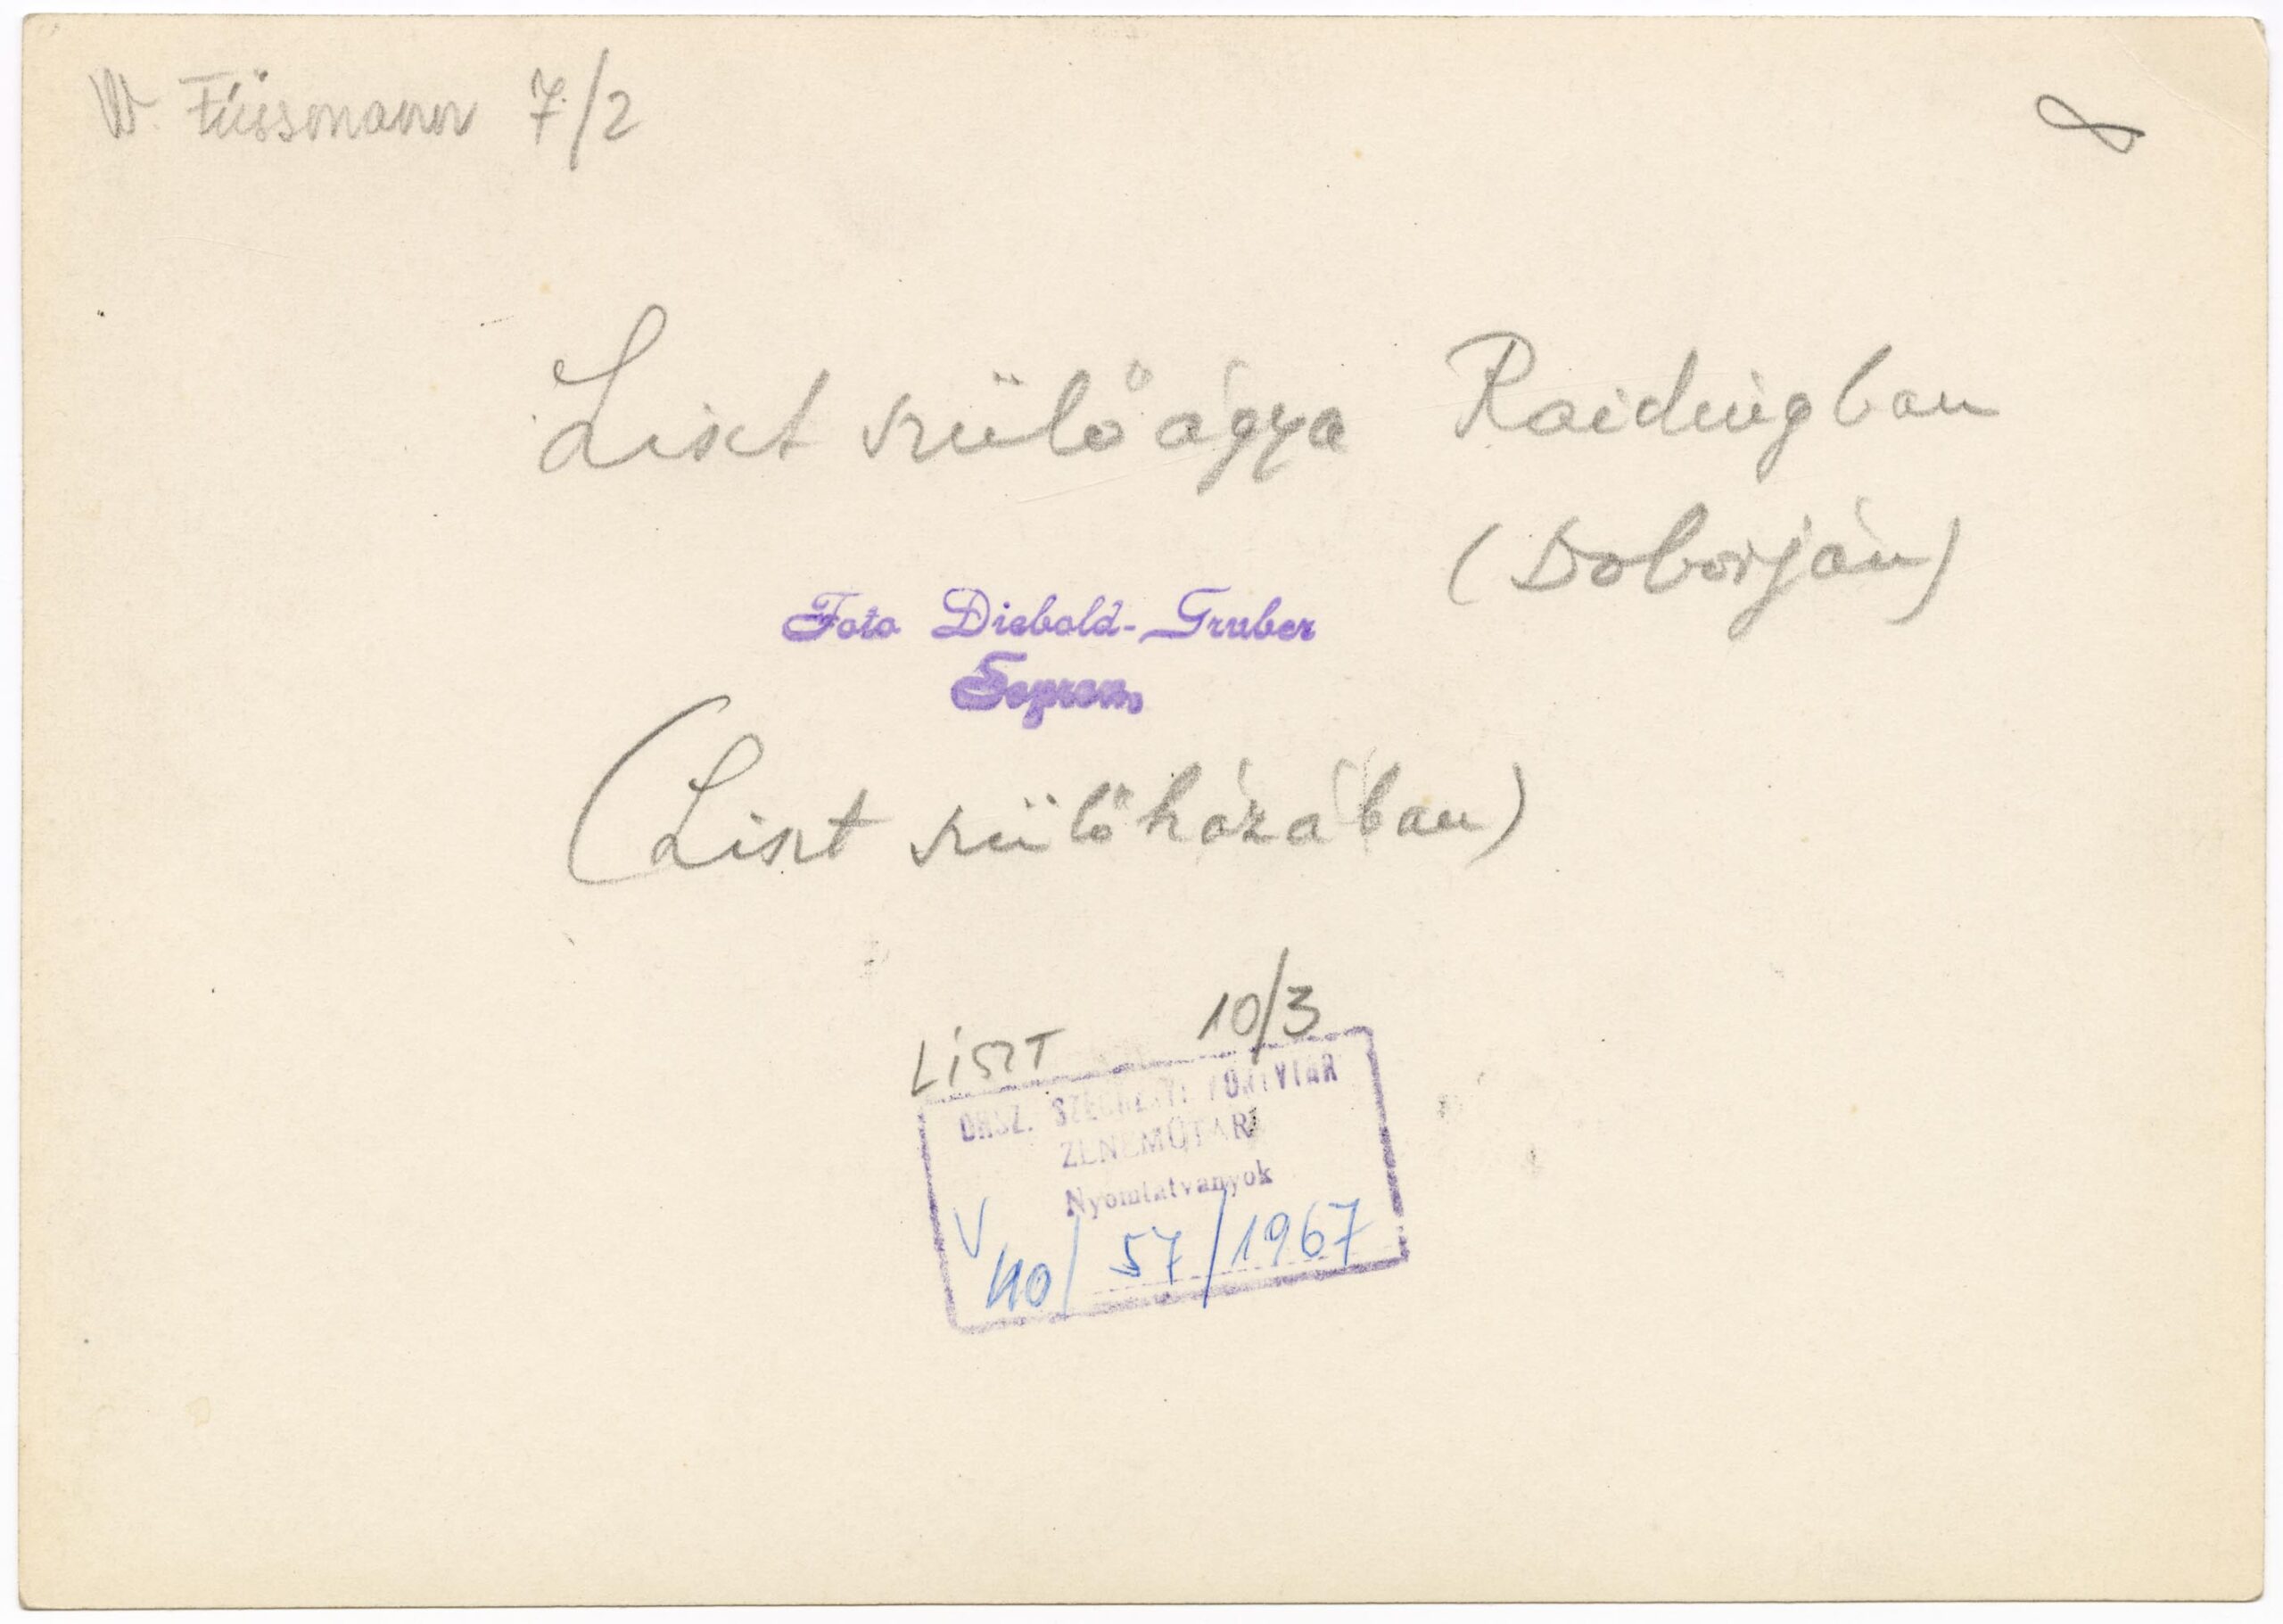 W. Füssmann 7/2
Liszt szülőágya Raidingban
(Doborján)
Foto Diebold-Gruber
Sopron
(Liszt szülőházában)
LISZT 10/3
ORSZ. SZÉCHÉNYI KÖNYVTÁR
ZENEMŰTÁR
Nyomtatványok
V 40/ 57/1967